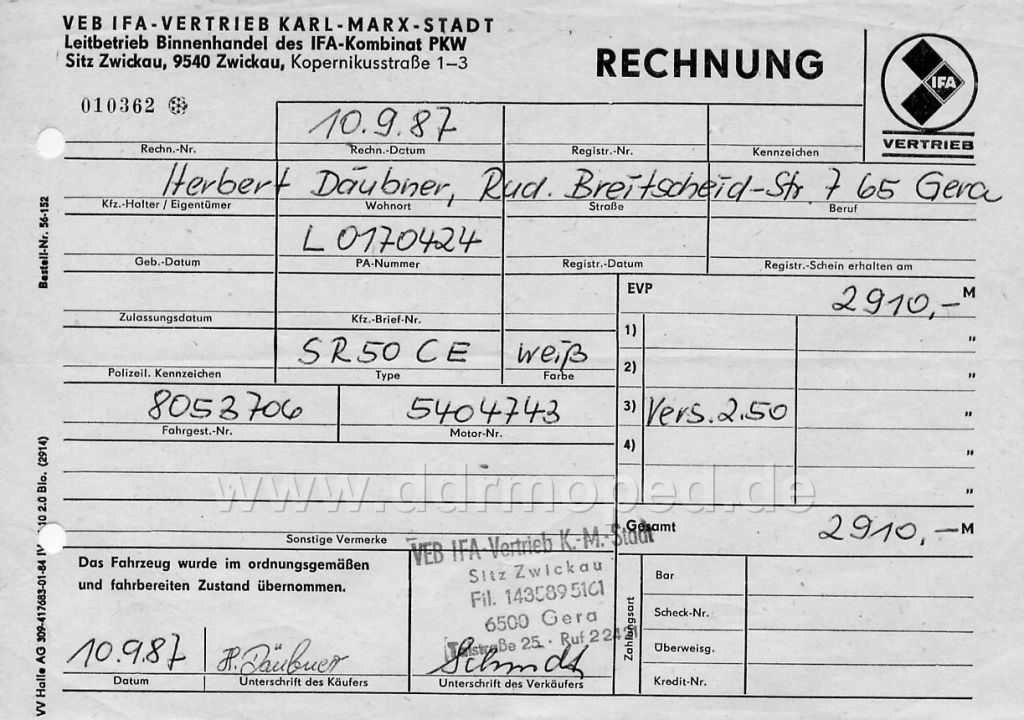 VEB IFA-VERTRIEB KARL-MARX-STADT
Leitbetrieb Binnenhandel des IFA-Kombinat PKW
Sitz Zwickau, 9540 Zwickau, Kopernikusstraße 1–3
RECHNUNG
IFA
VERTRIEB
010362
10.9.87
Rechn.-Nr. Rechn.-Datum Registr.-Nr. Kennzeichen
Herbert Däubner, Rud. Breitscheid-Str. 7 65 Gera
Kfz.-Halter / Eigentümer Wohnort Straße Beruf
L 0170424
Geb.-Datum PA-Nummer Registr.-Datum Registr.-Schein erhalten am
EVP 2910,- M
Zulassungsdatum Kfz.-Brief-Nr.
1) "
SR50 CE weiß
2) "
Polizeil. Kennzeichen Type Farbe
8053706 5404743
3) Vers. 2.50 "
Fahrgest.-Nr. Motor-Nr.
4) "
"
www.ddrmoped.de
Gesamt 2910,- M
Sonstige Vermerke
Das Fahrzeug wurde im ordnungsgemäßen
und fahrbereiten Zustand übernommen.
VEB IFA-Vertrieb K.-M.-Stadt
Sitz Zwickau
Fil.
6500 Gera
25 · Ruf
10.9.87 H. Däubner Schmidt
Datum Unterschrift des Käufers Unterschrift des Verkäufers
Zahlungsart
Bar
Scheck-Nr.
Überweisg.
Kredit-Nr.
Bestell-Nr. 56-152
VV Halle AG 309-417683-01-84 IV 2.0 Blo. (2914)